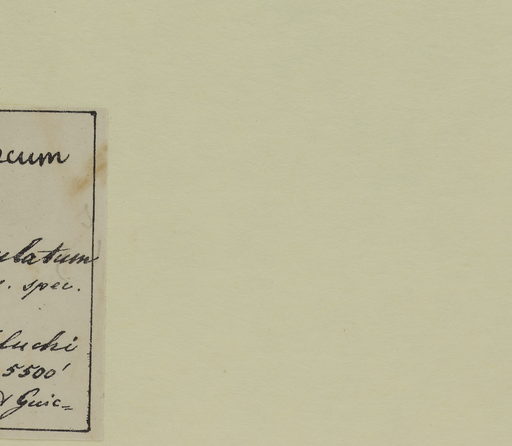 cum
latum
. spec.
luchi
5500'
& Guic=